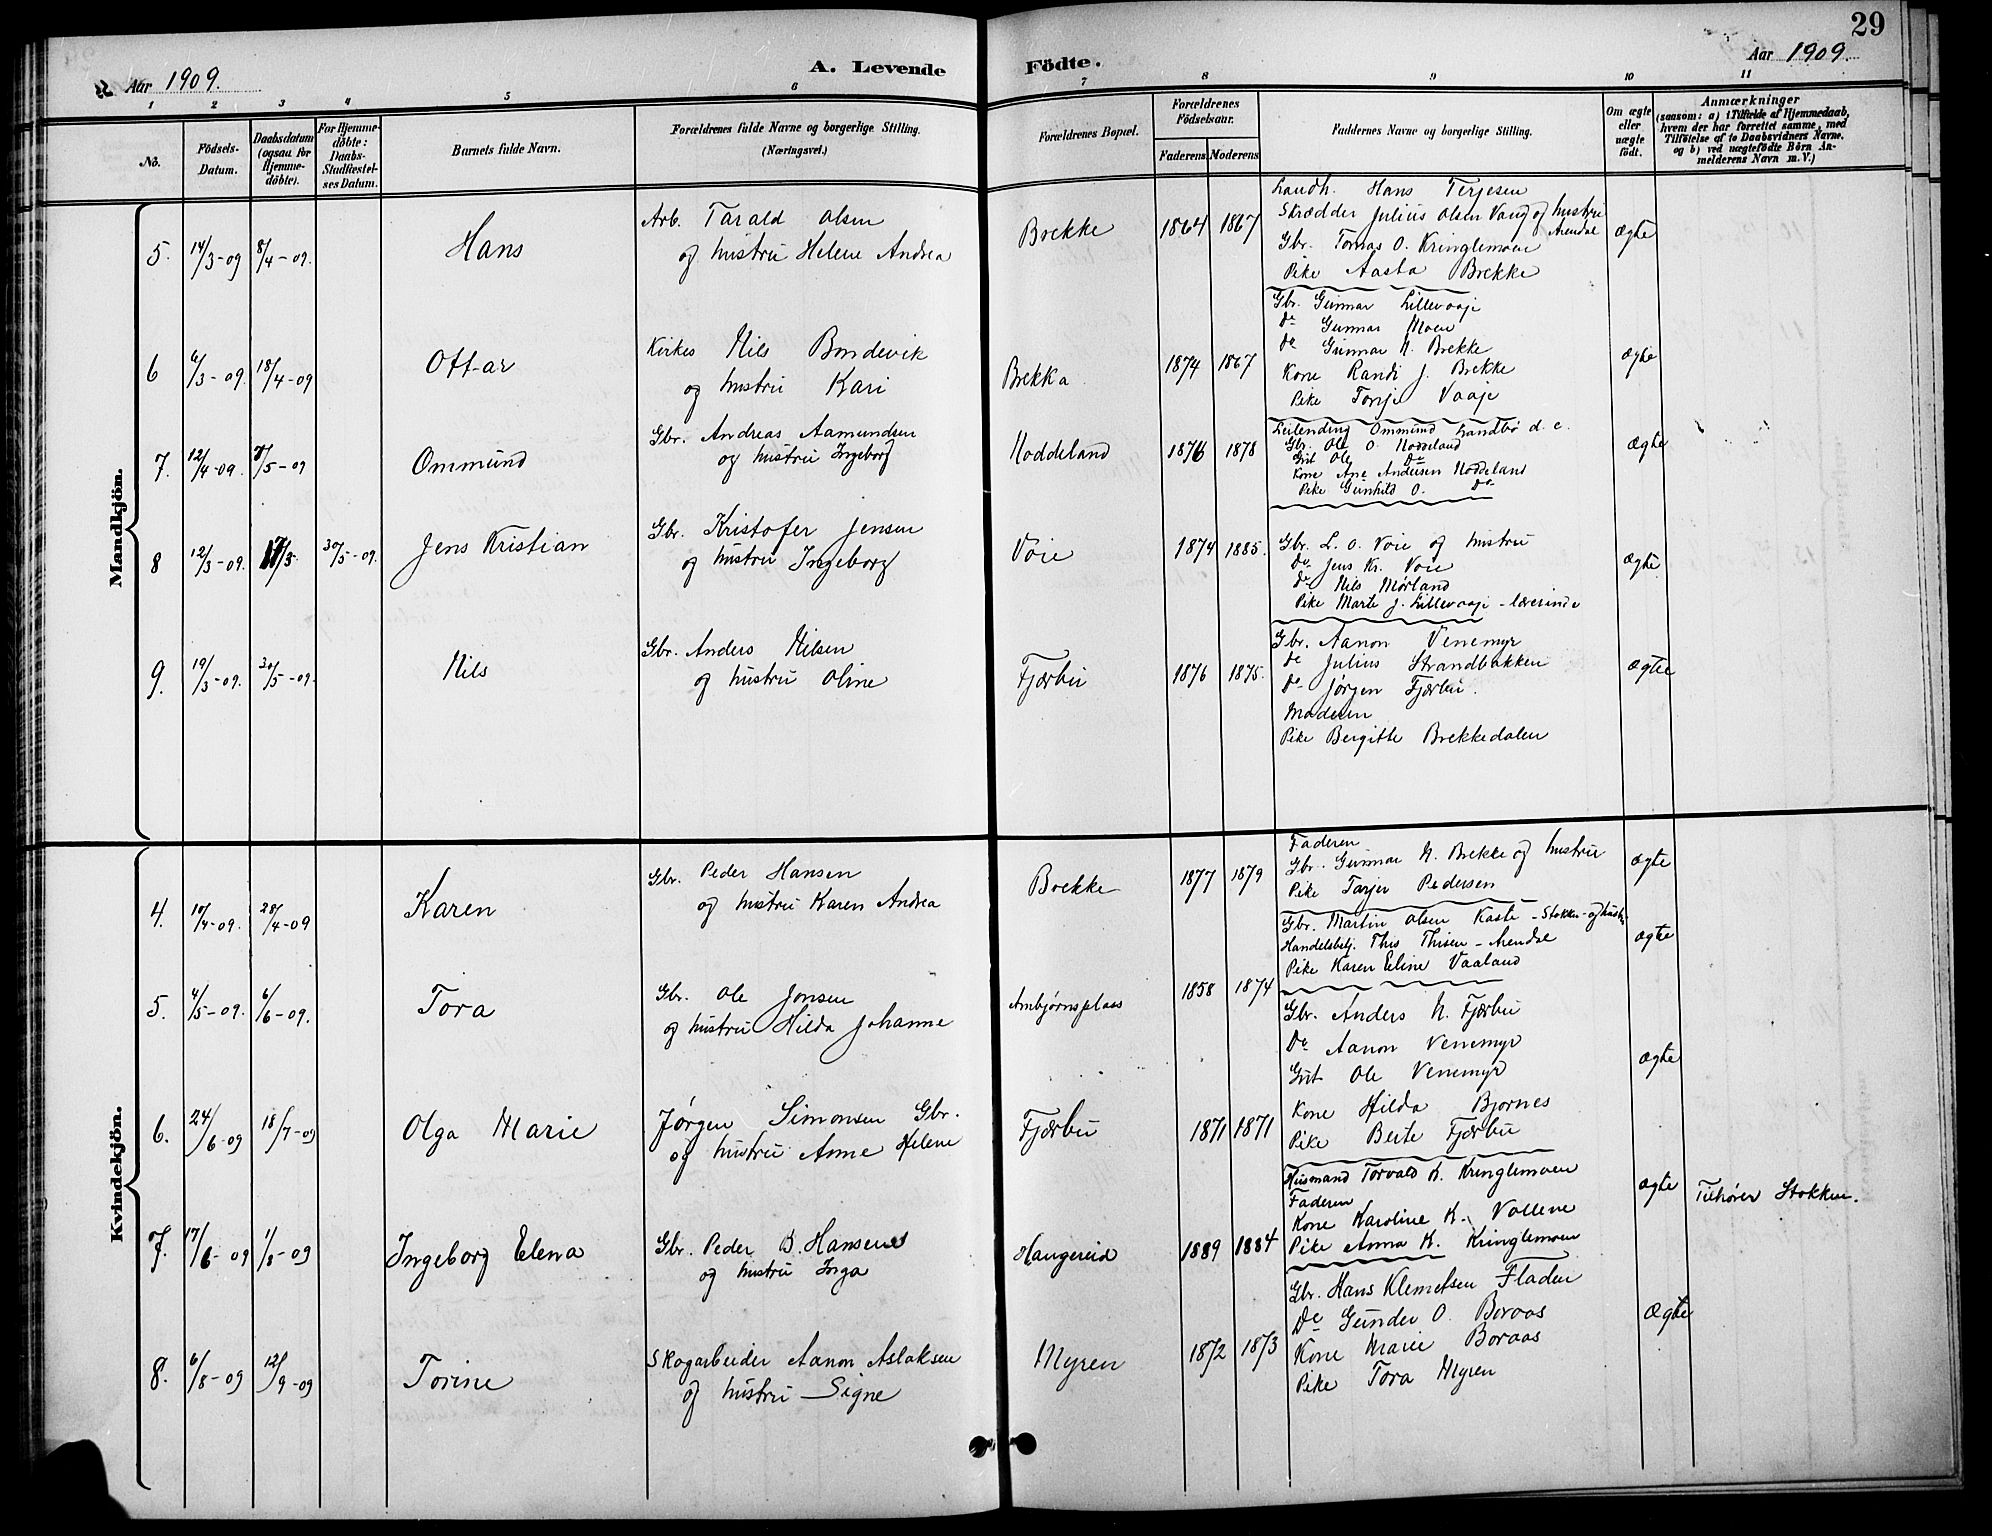 29
Aar 1909.
A. Levende Födte.
Aar 1909.
1 2 3 4 5 6 7 8 9 10 11
No.
Födsels-Datum.
Daabsdatum (ogsaa for Hjemme-döbte).
For Hjemme-döbte: Daabs-Stadfæstel-ses Datum.
Barnets fulde Navn.
Forældrenes fulde Navne og borgerlige Stilling.
(Næringsvei.)
Forældrenes Bopæl.
Forældrenes Födselsaar.
Faderens. Moderens.
Faddernes Navne og borgerlige Stilling.
Om ægte eller uægte födt.
Anmærkninger
(saasom: a) i Tilfælde af Hjemmedaab,
hvem der har forrettet samme, med
Tilföielse af to Daabsvidners Navne.
og b) ved uægtefödte Börn An-
melderens Navn m. V.)
Mandkjön.
5. 14/3-09 8/4-09. Hans
Arb. Tarald Olsen
og hustru Helene Andrea
Brekke 1864 1867
Landh. Hans Terjesen
Skrædder Julius Olsen Vaag og hustru
Arendal
Gbr. Tomas O. Kringlemoen
Pike Aasta Brekke
ægte
6 6/3-09. 18/4-09 Ottar
Kirkes Nils Bondevik
og hustru Kari
Brekka 1874 1867
Gbr. Gunnar Lillevaaje
do Gunnar Moen
do Gunnar N. Brekke
Kone Randi J. Brekke
Pike Tonje Vaaje
ægte
7. 12/4-09. /5-09 Ommund
Gbr. Andreas Aamundsen
og hustru Ingeborg
Noddeland 1876 1878
Leilending Ommund Landbø d. e.
Gbr. Ole O. Noddeland
Gut Ole Do
Kone Ane Andersen Noddeland
Pike Gunhild O. Do
ægte
8 12/3-09. 17/3. 30/5-09. Jens Kristian
Gbr. Kristofer Jensen
og hustru Ingeborg
Voie 1874 1885.
Gbr. L. O. Voie og hustru
Do Jens Kr. Voie
Do Nils Mørland
Pike Marte J. Lillevaaje - lærerinde
ægte
9. 19/3-09. 30/5-09. Nils
Gbr. Anders Nilsen
og hustru Oline
Fjærbu 1876 1875.
Gbr. Aanon Venemyr
do Julius Strandbakken
Do Jørgen Fjærbu.
Moderen
Pike Bergitte Brekkedalen
ægte
Kvindekjön.
4. 10/4-09. 28/4-09 Karen
Gbr. Peder Hansen
og hustru Karen Andrea
Brekke 1877 1879
Faderen
Gbr. Gunnar N. Brekke og hustru
Pike Tarjer Pedersen
ægte
5. 4/5-09. 6/6-09. Tora
Gbr. Ole Jonsen
og hustru Hilda Johanne
Ambjørnsplass 1858 1874
Gbr. Martin Olsen Kaste - Stokken - og hustru
Handelsbetj. This Thisen - Arendal
Pike Karen Eline Vaaland
ægte
6. 24/6-09 18/7-09 Olga Marie
Jørgen Simonsen Gbr.
og hustru Anne Helene
Fjærbu 1871 1871
Gbr. Anders N. Fjærbu
Do Aanon Venemyr
Gut Ole Venemyr
Kone Hilda Bjornes
Pike Berte Fjærbu
ægte
7. 17/6-09 1/8-09 Ingeborg Elena
Gbr. Peder B. Hansen
og hustru Inga
Haugereid 1889 1884
Husmand Torvald K. Kringlemoen
Faderen
Kone Karoline K. Vollene
Pike Anna K. Kringlemoen
ægte
Tilhører Stokken.
8. 6/8-09 12/9-09 Torine
Skogarbeider Aanon Aslaksen
og hustru Signe
Myren 1872 1873
Gbr. Hans Klemetsen Fladen
Do Gunder O. Boraas
Kone Marie Boraas
Pike Tora Myren
Ægte